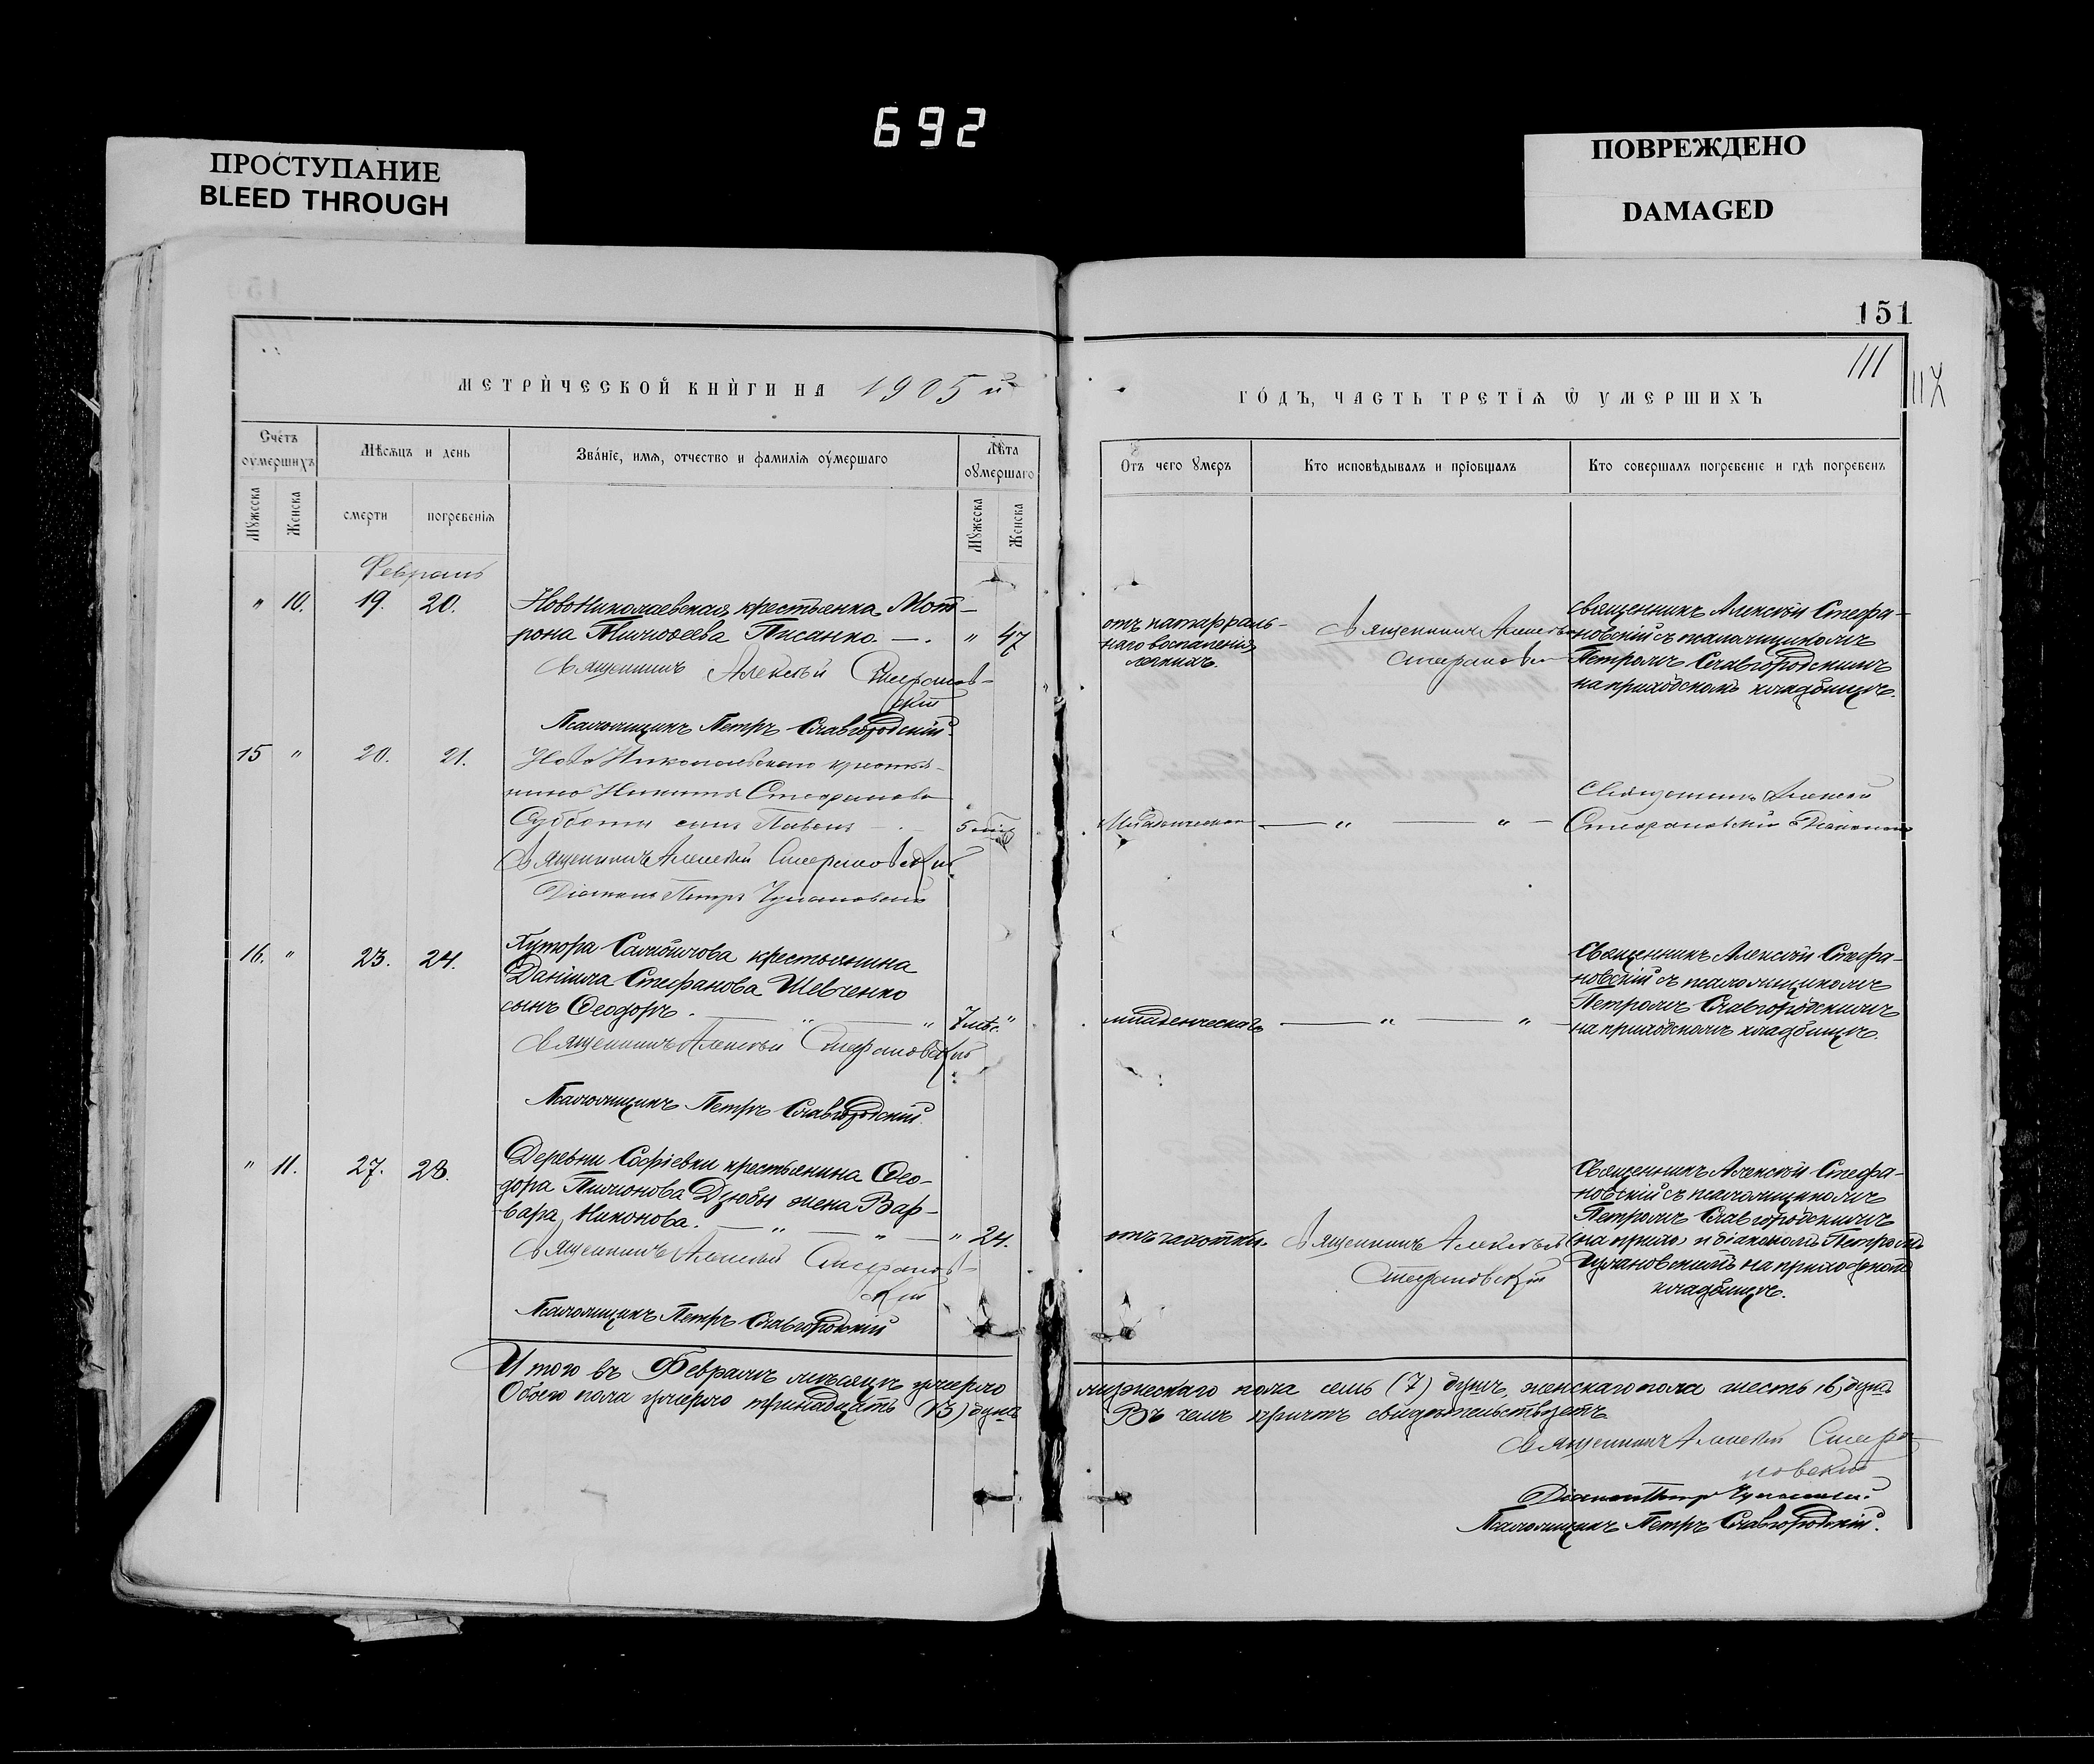 692
ПРОСТУПАНИЕ
BLEED THROUGH
ПОВРЕЖДЕНО
DAMAGED
151
111
МЕТРИЧЕСКОЙ КНИГИ НА 1905 й
ГОДЪ, ЧАСТЬ ТРЕТІЯ Ѿ УМЕРШИХЪ
Счетъ оумершихъ
Мѣсяцъ и день
Званіе, имя, отчество и фамилія оумершаго
Лѣта оумершаго
Мужеска
Женска
смерти
погребенія
Мужеска
Женска
Отъ чего умеръ
Кто исповѣдывалъ и пріобщалъ
Кто совершалъ погребеніе и гдѣ погребенъ
Февраль
" 10. 19. 20.
Новониколаевская крестьянка Мот-
рона Тимоѳеева Писанко — . " 47
Священникъ Алексѣй Стефанов-
скій
Псаломщикъ Петръ Славгородскій.
отъ катарраль-
наго воспаленія
легкихъ.
Священникъ Алексѣй
Стефановскій
Священникъ Алексій Стефа-
новскій съ псаломщикомъ
Петромъ Славгородскимъ
на приходскомъ кладбищѣ.
15 " 20. 21.
Ново Николаевскаго крестья-
нина Никиты Стефанова
Субботы сынъ Павелъ — . — 5
Священникъ Алексѣй Стефановскій
Діаконъ Петръ
Младенческой — " — " —
Священникъ Алексій
Стефановскій
16. " 23. 24.
Хутора крестьянина
Даніила Стефанова Шевченко
сынъ Ѳеодоръ. — " — " 7 мѣс. "
Священникъ Алексѣй Стефановскій
Псаломщикъ Петръ Славгородскій.
младенческаго — " — " —
Священникъ Алексій Стефа-
новскій съ псаломщикомъ
Петромъ Славгородскимъ
на приходскомъ кладбищѣ.
" 11. 27. 28.
Деревни Софіевки крестьянина Ѳео-
дора Дзюбы жена Вар-
вара Никонова. — " — " — " 24.
Священникъ Алексѣй Стефанов-
скій
Псаломщикъ Петръ Славгородскій
отъ чахотки.
Священникъ Алексѣй
Стефановскій
Священникъ Алексій Стефа-
новскій съ псаломщикомъ
Петромъ Славгородскимъ
(на прихо) и діакономъ Петромъ
на приходскомъ
кладбищѣ.
Итого въ Февралѣ мѣсяцѣ умерло
мужескаго пола семь (7) душъ, женскаго пола шесть (6) душъ
Обоего пола умерло тринадцать (13) душъ
Въ чемъ причтъ свидѣтельствуетъ
Священникъ Алексѣй Стефа-
новскій
Діаконъ Петръ
Псаломщикъ Петръ Славгородскій.